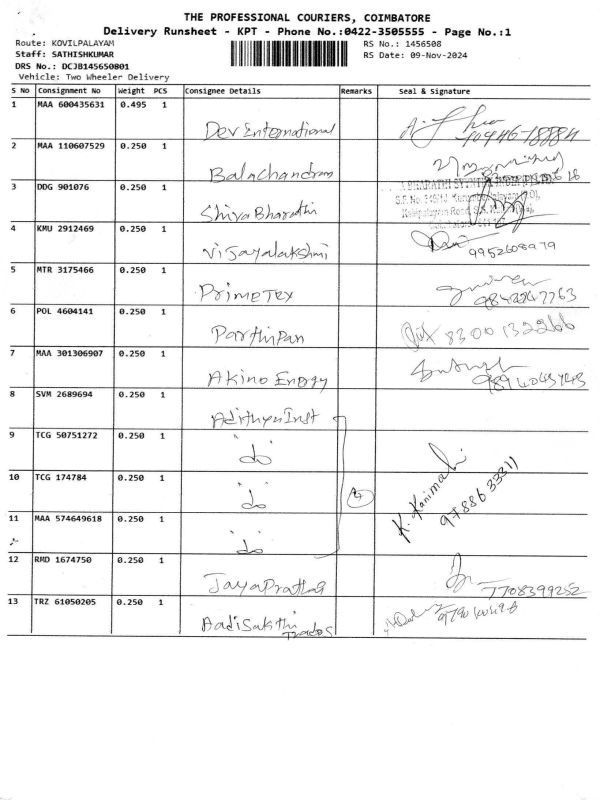 THE PROFESSIONAL COURIERS, COIMBATORE
Delivery Runsheet - KPT - Phone No.:0422-3505555 - Page No.:1
Route: KOVILPALAYAM
RS No.: 1456508
Staff: SATHISHKUMAR
RS Date: 09-Nov-2024
DRS No.: DCJB145650801
Vehicle: Two Wheeler Delivery
S No Consignment No Weight PCS Consignee Details Remarks Seal & Signature
1 MAA 600435631 0.495 1
Dev International
2 MAA 110607529 0.250 1
Balachandran
3 DDG 901076 0.250 1
Shiva Bharathi
4 KMU 2912469 0.250 1
Vijayalakshmi 9952608979
5 MTR 3175466 0.250 1
PrimeTex 9842247763
6 POL 4604141 0.250 1
Parthipan 8300132266
7 MAA 301306907 0.250 1
Akino Energy
8 SVM 2689694 0.250 1
Adithya Inst
9 TCG 50751272 0.250 1
do
10 TCG 174784 0.250 1
do 4 K. Kanimalai
9788633311
11 MAA 574649618 0.250 1
do
12 RMD 1674750 0.250 1
JayaPratha 7708399252
13 TRZ 61050205 0.250 1
Aadi Sakthi
Traders